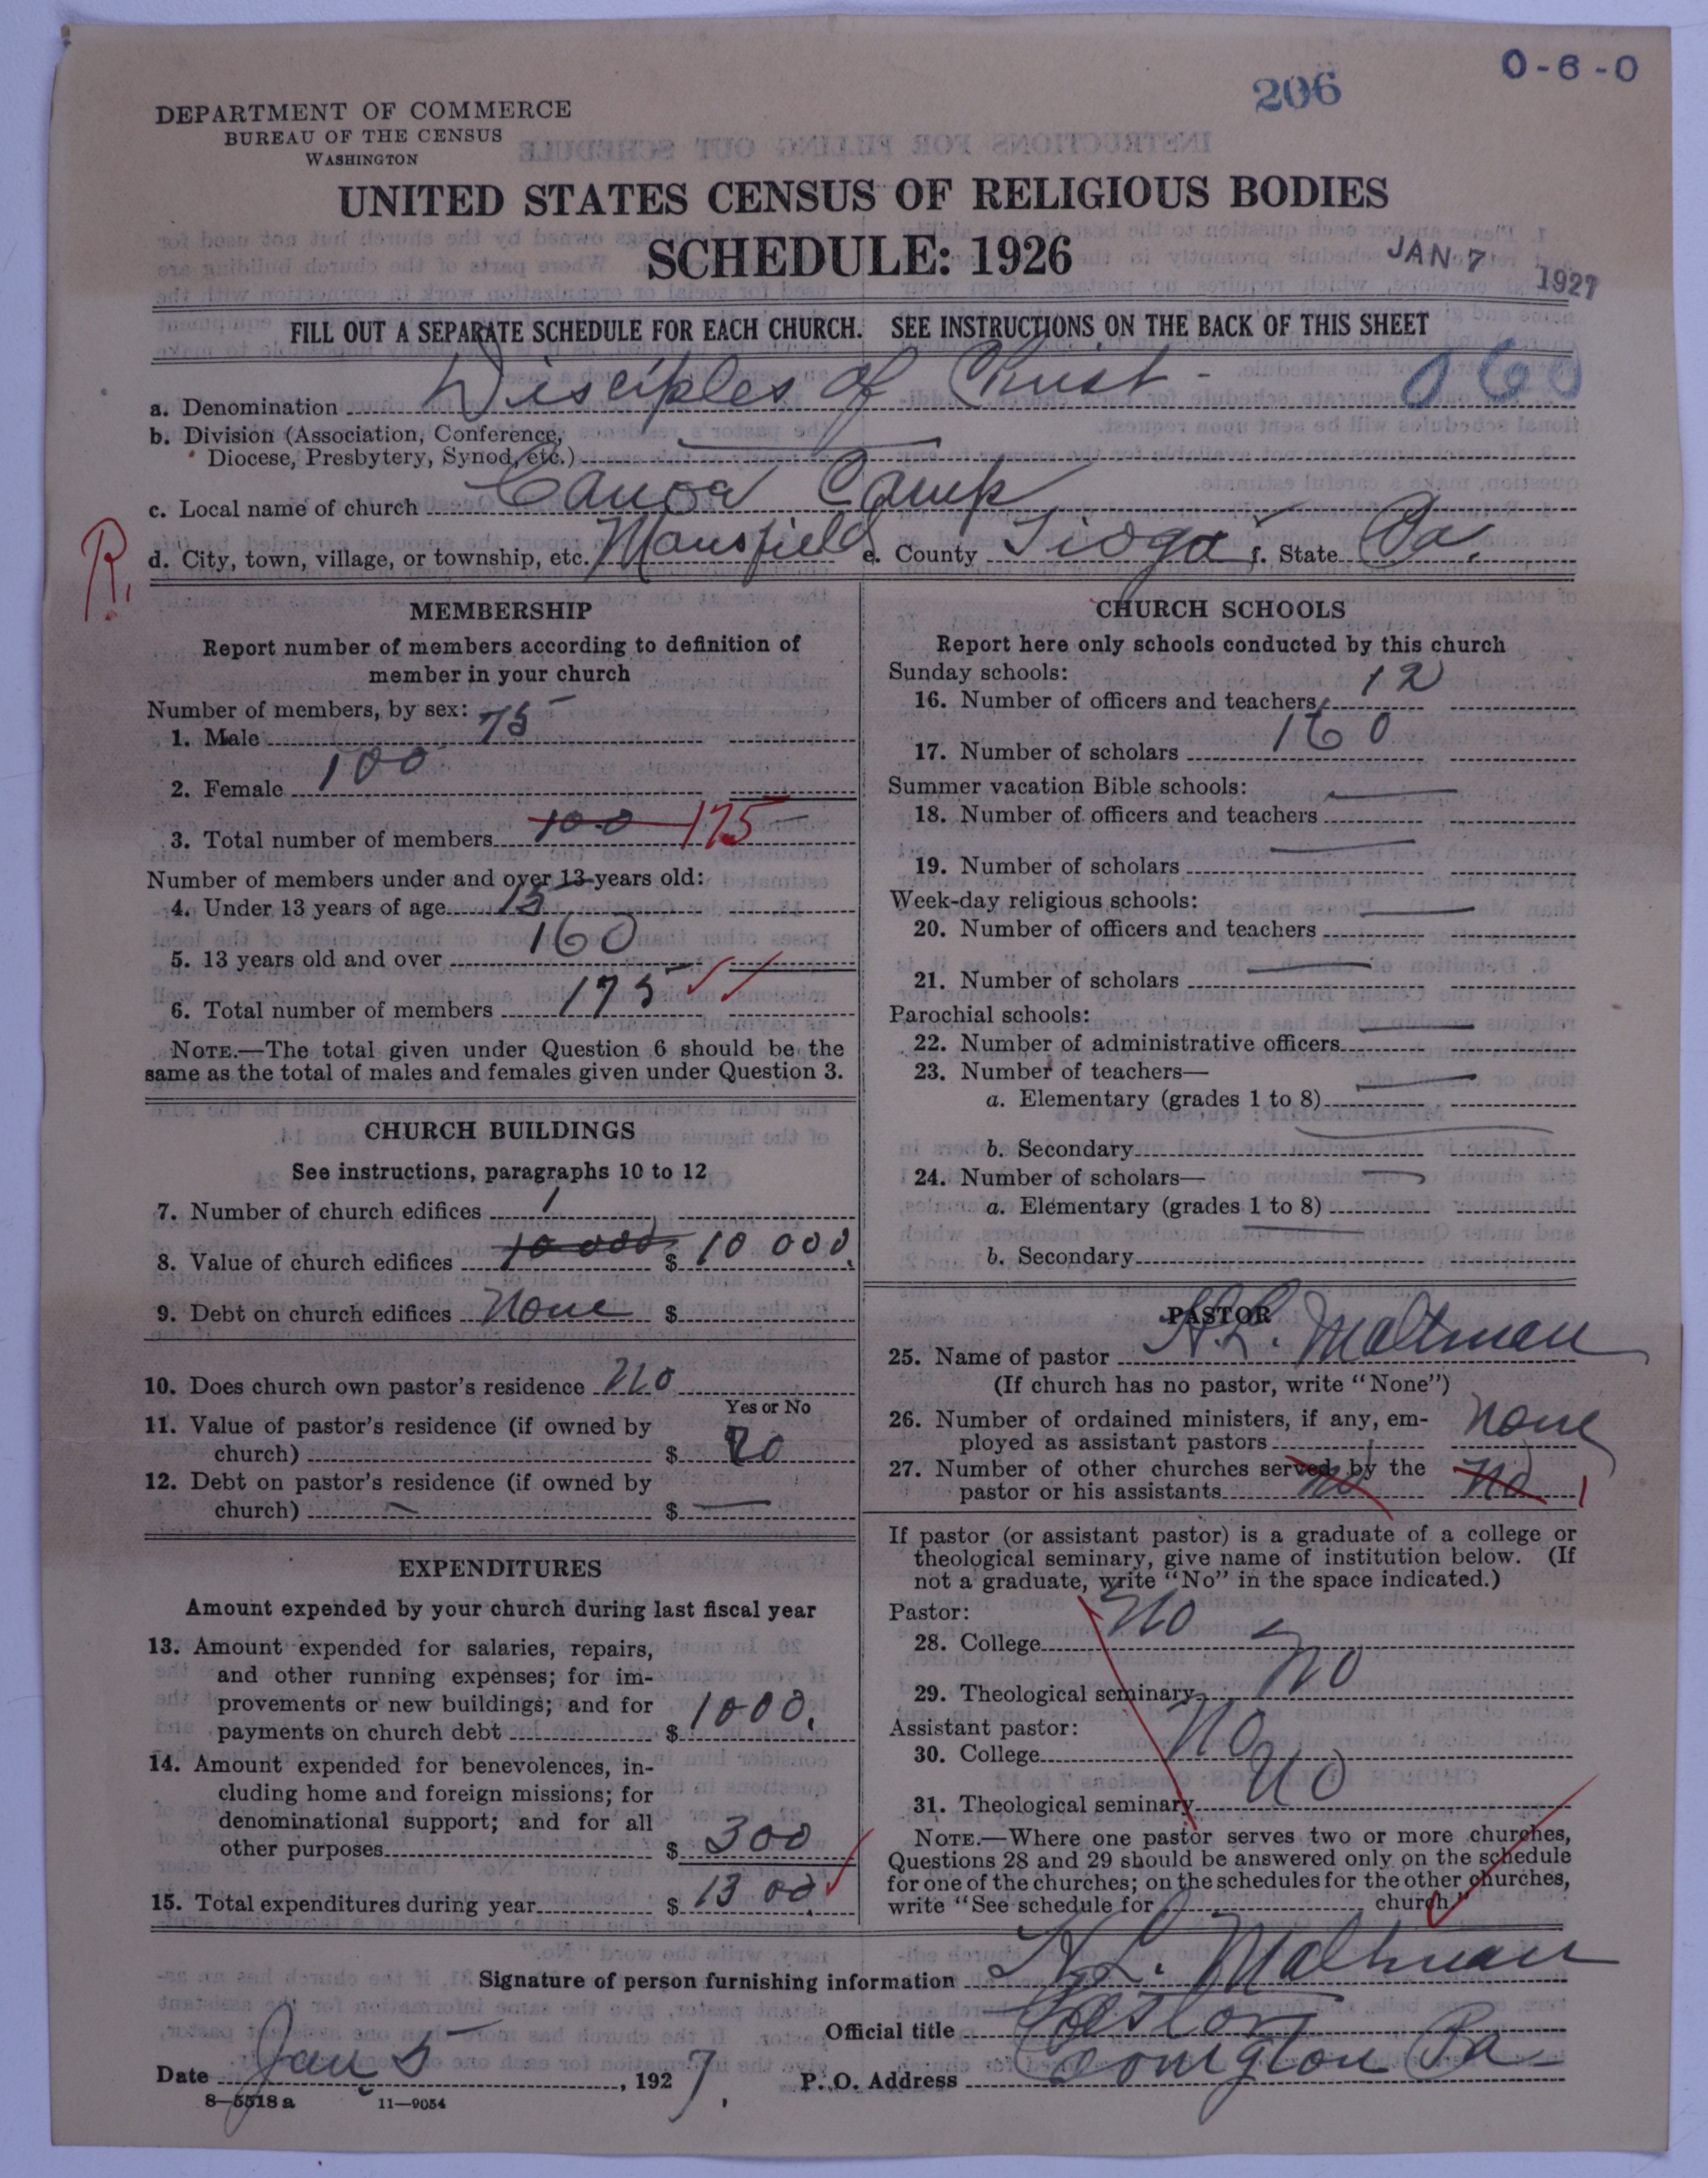 206
0-6-0
DEPARTMENT OF COMMERCE
BUREAU OF THE CENSUS
WASHINGTON
UNITED STATES CENSUS OF RELIGIOUS BODIES
SCHEDULE: 1926
JAN 7 1927
FILL OUT A SEPARATE SCHEDULE FOR EACH CHURCH. SEE INSTRUCTIONS ON THE BACK OF THIS SHEET
a. Denomination Disciples of Christ - 060
b. Division (Association, Conference,
Diocese, Presbytery, Synod, etc.)
c. Local name of church Canoa Camp
R.
d. City, town, village, or township, etc. Mansfield e. County Tioga f. State Pa.
MEMBERSHIP
Report number of members according to definition of
member in your church
Number of members, by sex:
1. Male 75
2. Female 100
3. Total number of members 100 175
Number of members under and over 13 years old:
4. Under 13 years of age 15
5. 13 years old and over 160
6. Total number of members 175
NOTE.—The total given under Question 6 should be the
same as the total of males and females given under Question 3.
CHURCH BUILDINGS
See instructions, paragraphs 10 to 12
7. Number of church edifices 1
8. Value of church edifices 10 000 $ 10 000.
9. Debt on church edifices None $
10. Does church own pastor's residence no
Yes or No
11. Value of pastor's residence (if owned by
church) $ no
12. Debt on pastor's residence (if owned by
church) $
EXPENDITURES
Amount expended by your church during last fiscal year
13. Amount expended for salaries, repairs,
and other running expenses; for im-
provements or new buildings; and for
payments on church debt $ 1000.
14. Amount expended for benevolences, in-
cluding home and foreign missions; for
denominational support; and for all
other purposes $ 300
15. Total expenditures during year $ 1300.
CHURCH SCHOOLS
Report here only schools conducted by this church
Sunday schools:
16. Number of officers and teachers 12
17. Number of scholars 160
Summer vacation Bible schools:
18. Number of officers and teachers
19. Number of scholars
Week-day religious schools:
20. Number of officers and teachers
21. Number of scholars
Parochial schools:
22. Number of administrative officers
23. Number of teachers—
a. Elementary (grades 1 to 8)
b. Secondary
24. Number of scholars—
a. Elementary (grades 1 to 8)
b. Secondary
PASTOR
25. Name of pastor H.L. Maltman
(If church has no pastor, write "None")
26. Number of ordained ministers, if any, em-
ployed as assistant pastors none
27. Number of other churches served by the
pastor or his assistants no no 1
If pastor (or assistant pastor) is a graduate of a college or
theological seminary, give name of institution below. (If
not a graduate, write "No" in the space indicated.)
Pastor:
28. College No
29. Theological seminary no
Assistant pastor:
30. College No
31. Theological seminary no
NOTE.—Where one pastor serves two or more churches,
Questions 28 and 29 should be answered only on the schedule
for one of the churches; on the schedules for the other churches,
write "See schedule for church."
Signature of person furnishing information H.L. Maltman
Official title Pastor
Date Jan 5, 1927. P. O. Address Covington Pa
8—5518 a 11—9054